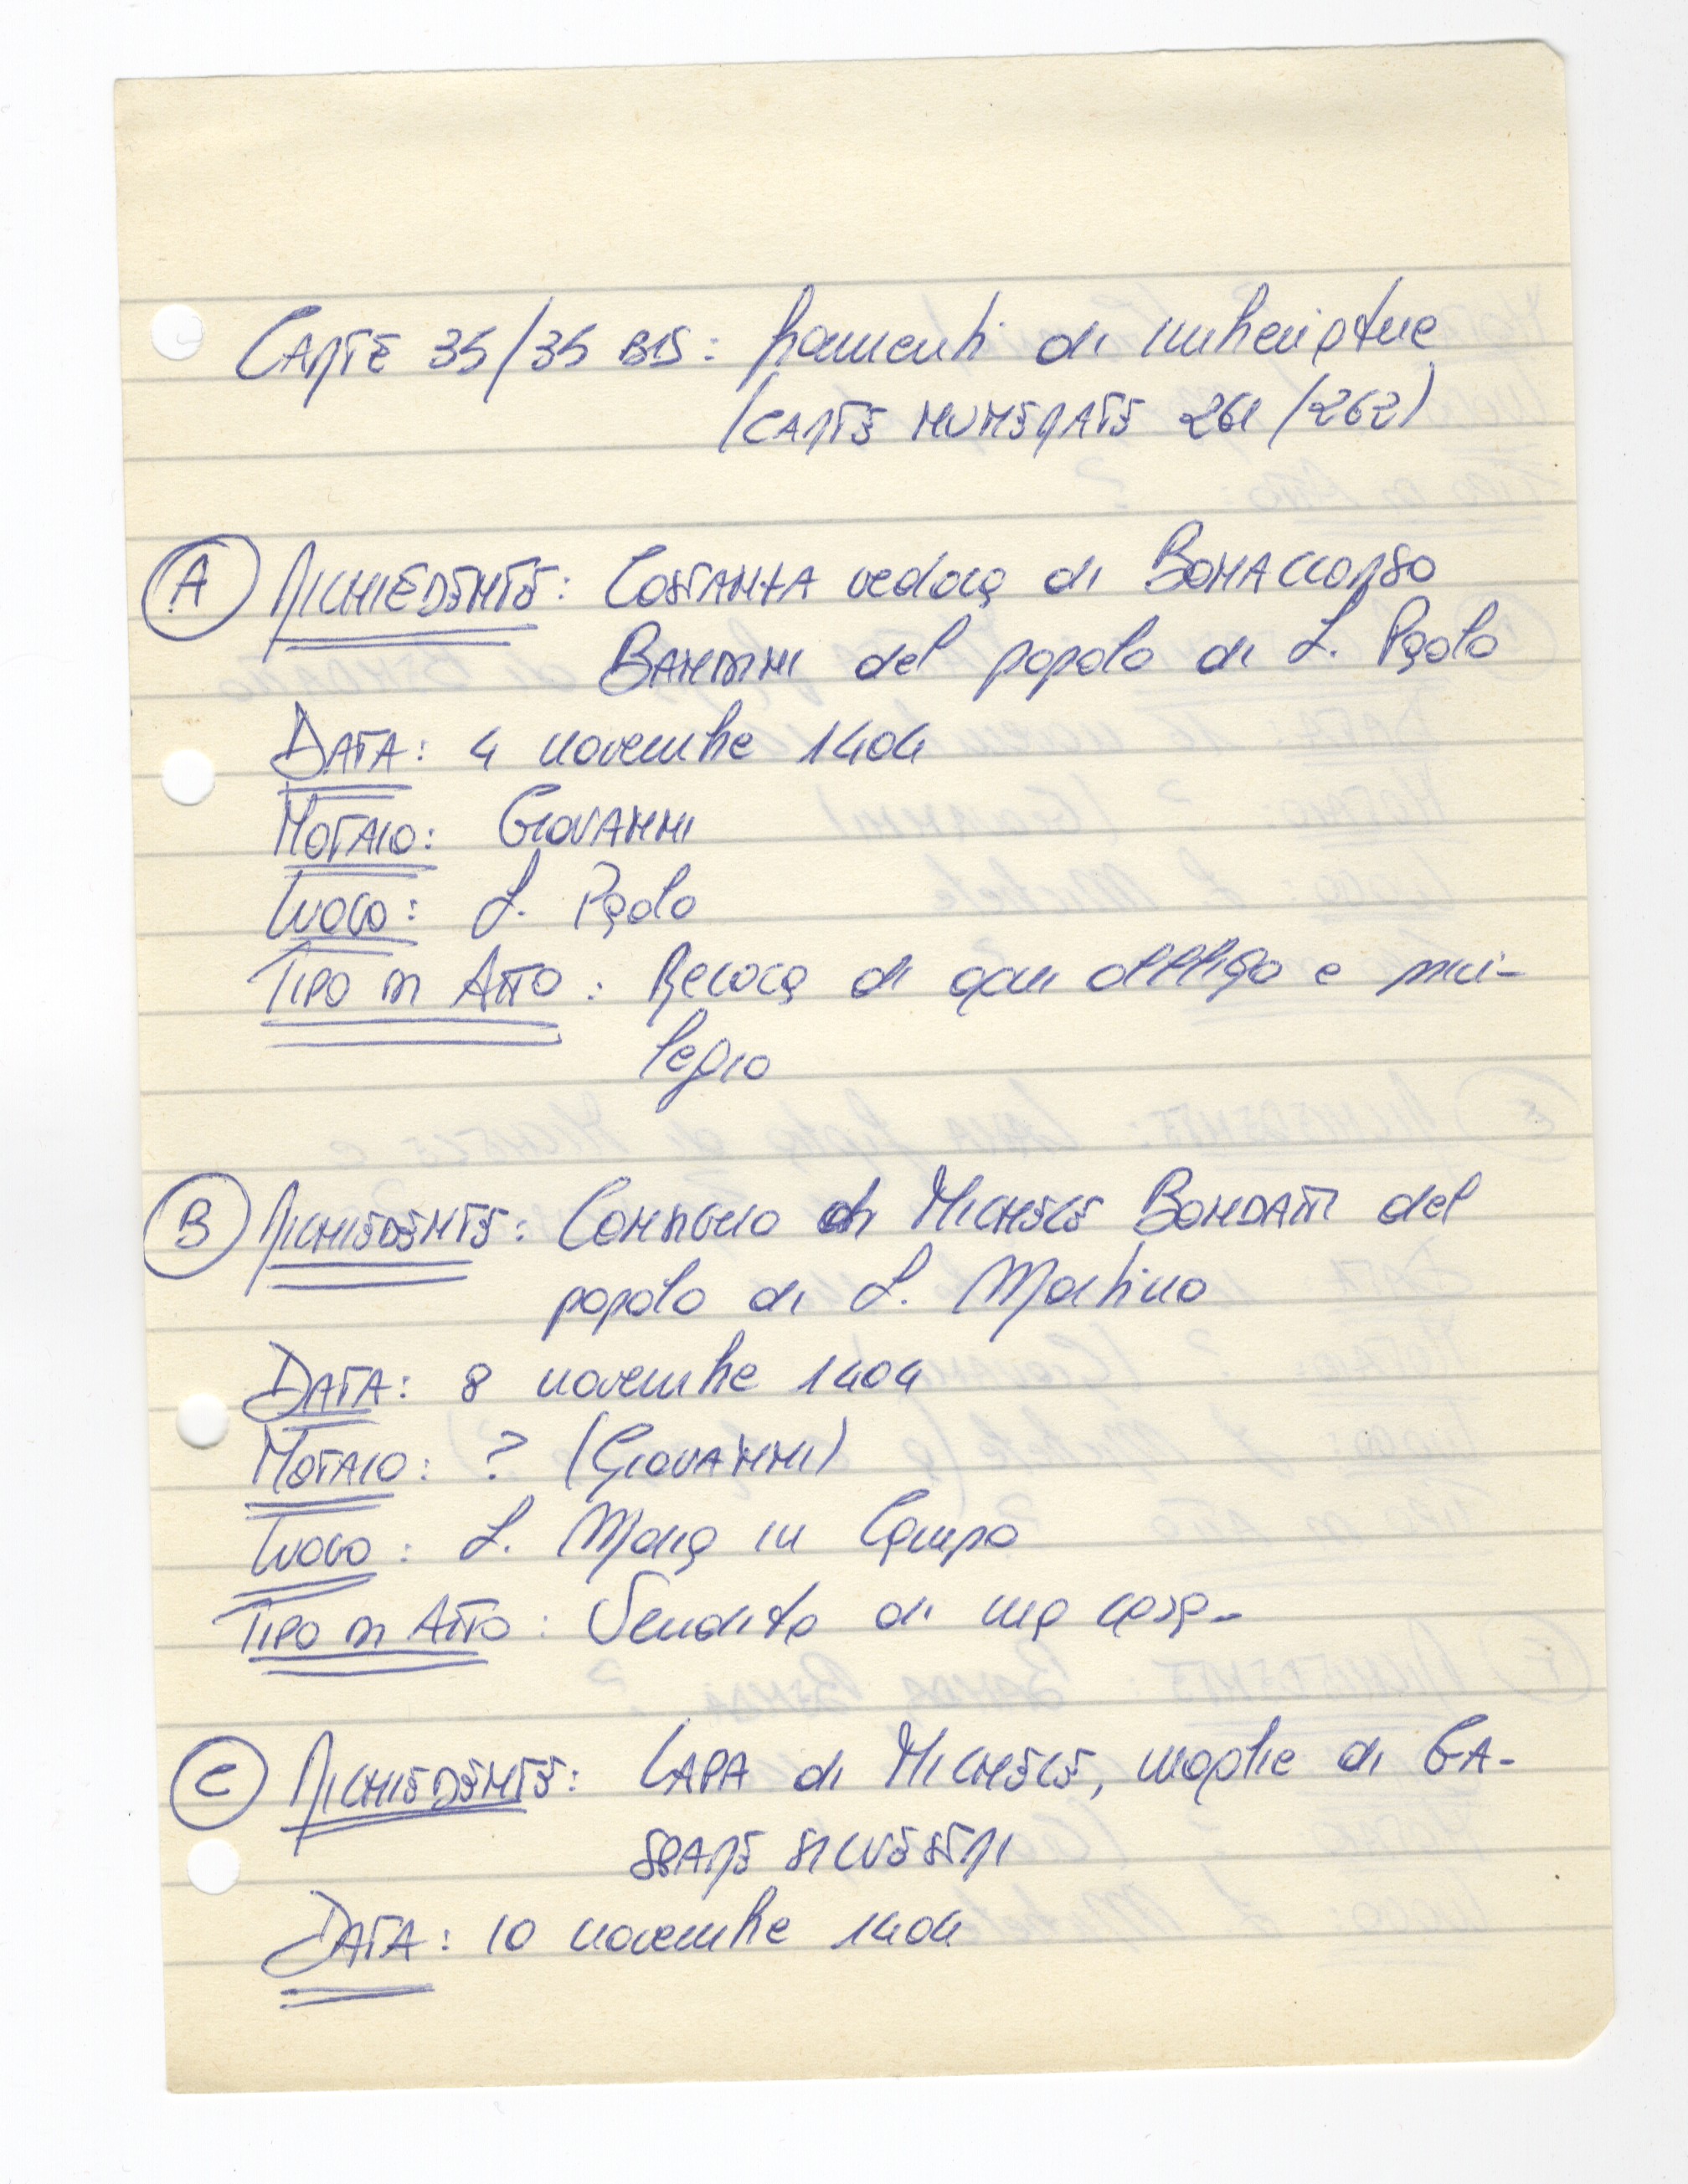 CARTE 35/35 BIS: frammenti di imbreviature
(CARTE NUMERATE 261/262)
A RICHIEDENTE: COSTANZA vedova di BONACCORSO
BANDINI del popolo di S. Paolo
DATA: 4 novembre 1404
NOTAIO: GIOVANNI
LUOGO: S. Paolo
TIPO DI ATTO: Revoca di ogni obbligo e privi-
legio
B RICHIEDENTE: di MICHELE del
popolo di S. Martino
DATA: 8 novembre 1404
NOTAIO: ? (GIOVANNI)
LUOGO: S. Maria in Campo
TIPO DI ATTO: Vendita di una casa-
C RICHIEDENTE: LAPA di MICHELE, moglie di GA-
SPARE SILVESTRI
DATA: 10 novembre 1404